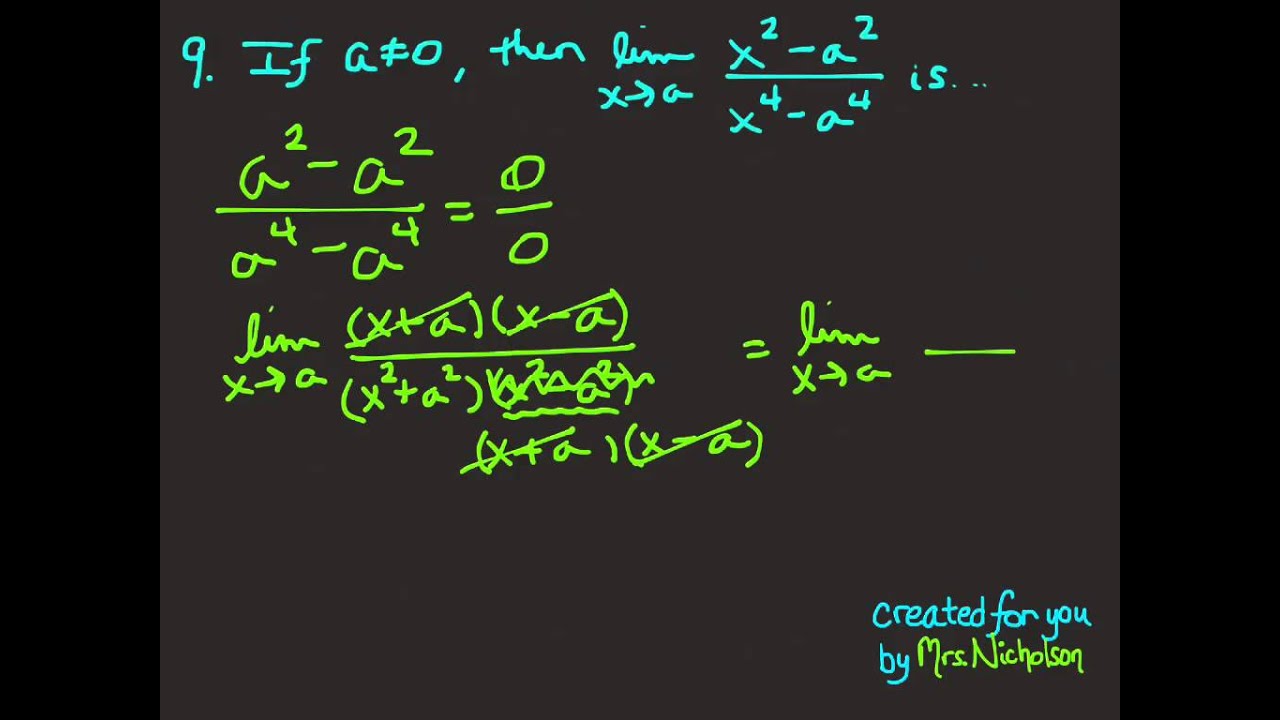 9. If a≠0, then lim x→a (x² - a²)/(x⁴ - a⁴) is...
(a² - a²)/(a⁴ - a⁴) = 0/0
lim x→a (x+a)(x-a)/(x²+a²)(x²-a²) = lim x→a ―
(x+a)(x-a)
created for you
by Mrs. Nicholson